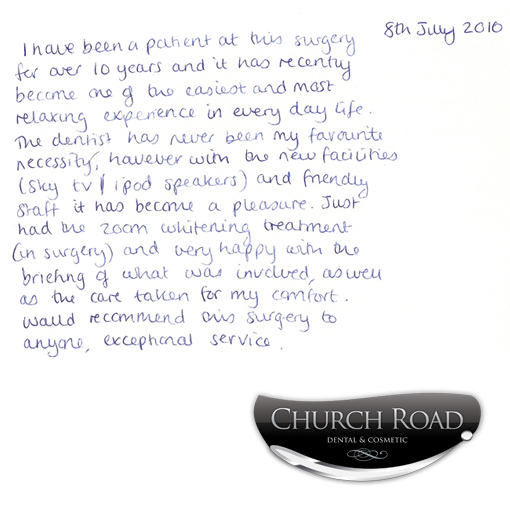 8th July 2010
I have been a patient at this surgery
for over 10 years and it has recently
become one of the easiest and most
relaxing experience in every day life.
The dentist has never been my favourite
necessity, however with the new facilities
(sky tv / ipod speakers) and friendly
staff it has become a pleasure. Just
had the zoom whitening treatment
(in surgery) and very happy with the
briefing of what was involved, as well
as the care taken for my comfort.
Would recommend this surgery to
anyone, exceptional service.
CHURCH ROAD
DENTAL & COSMETIC